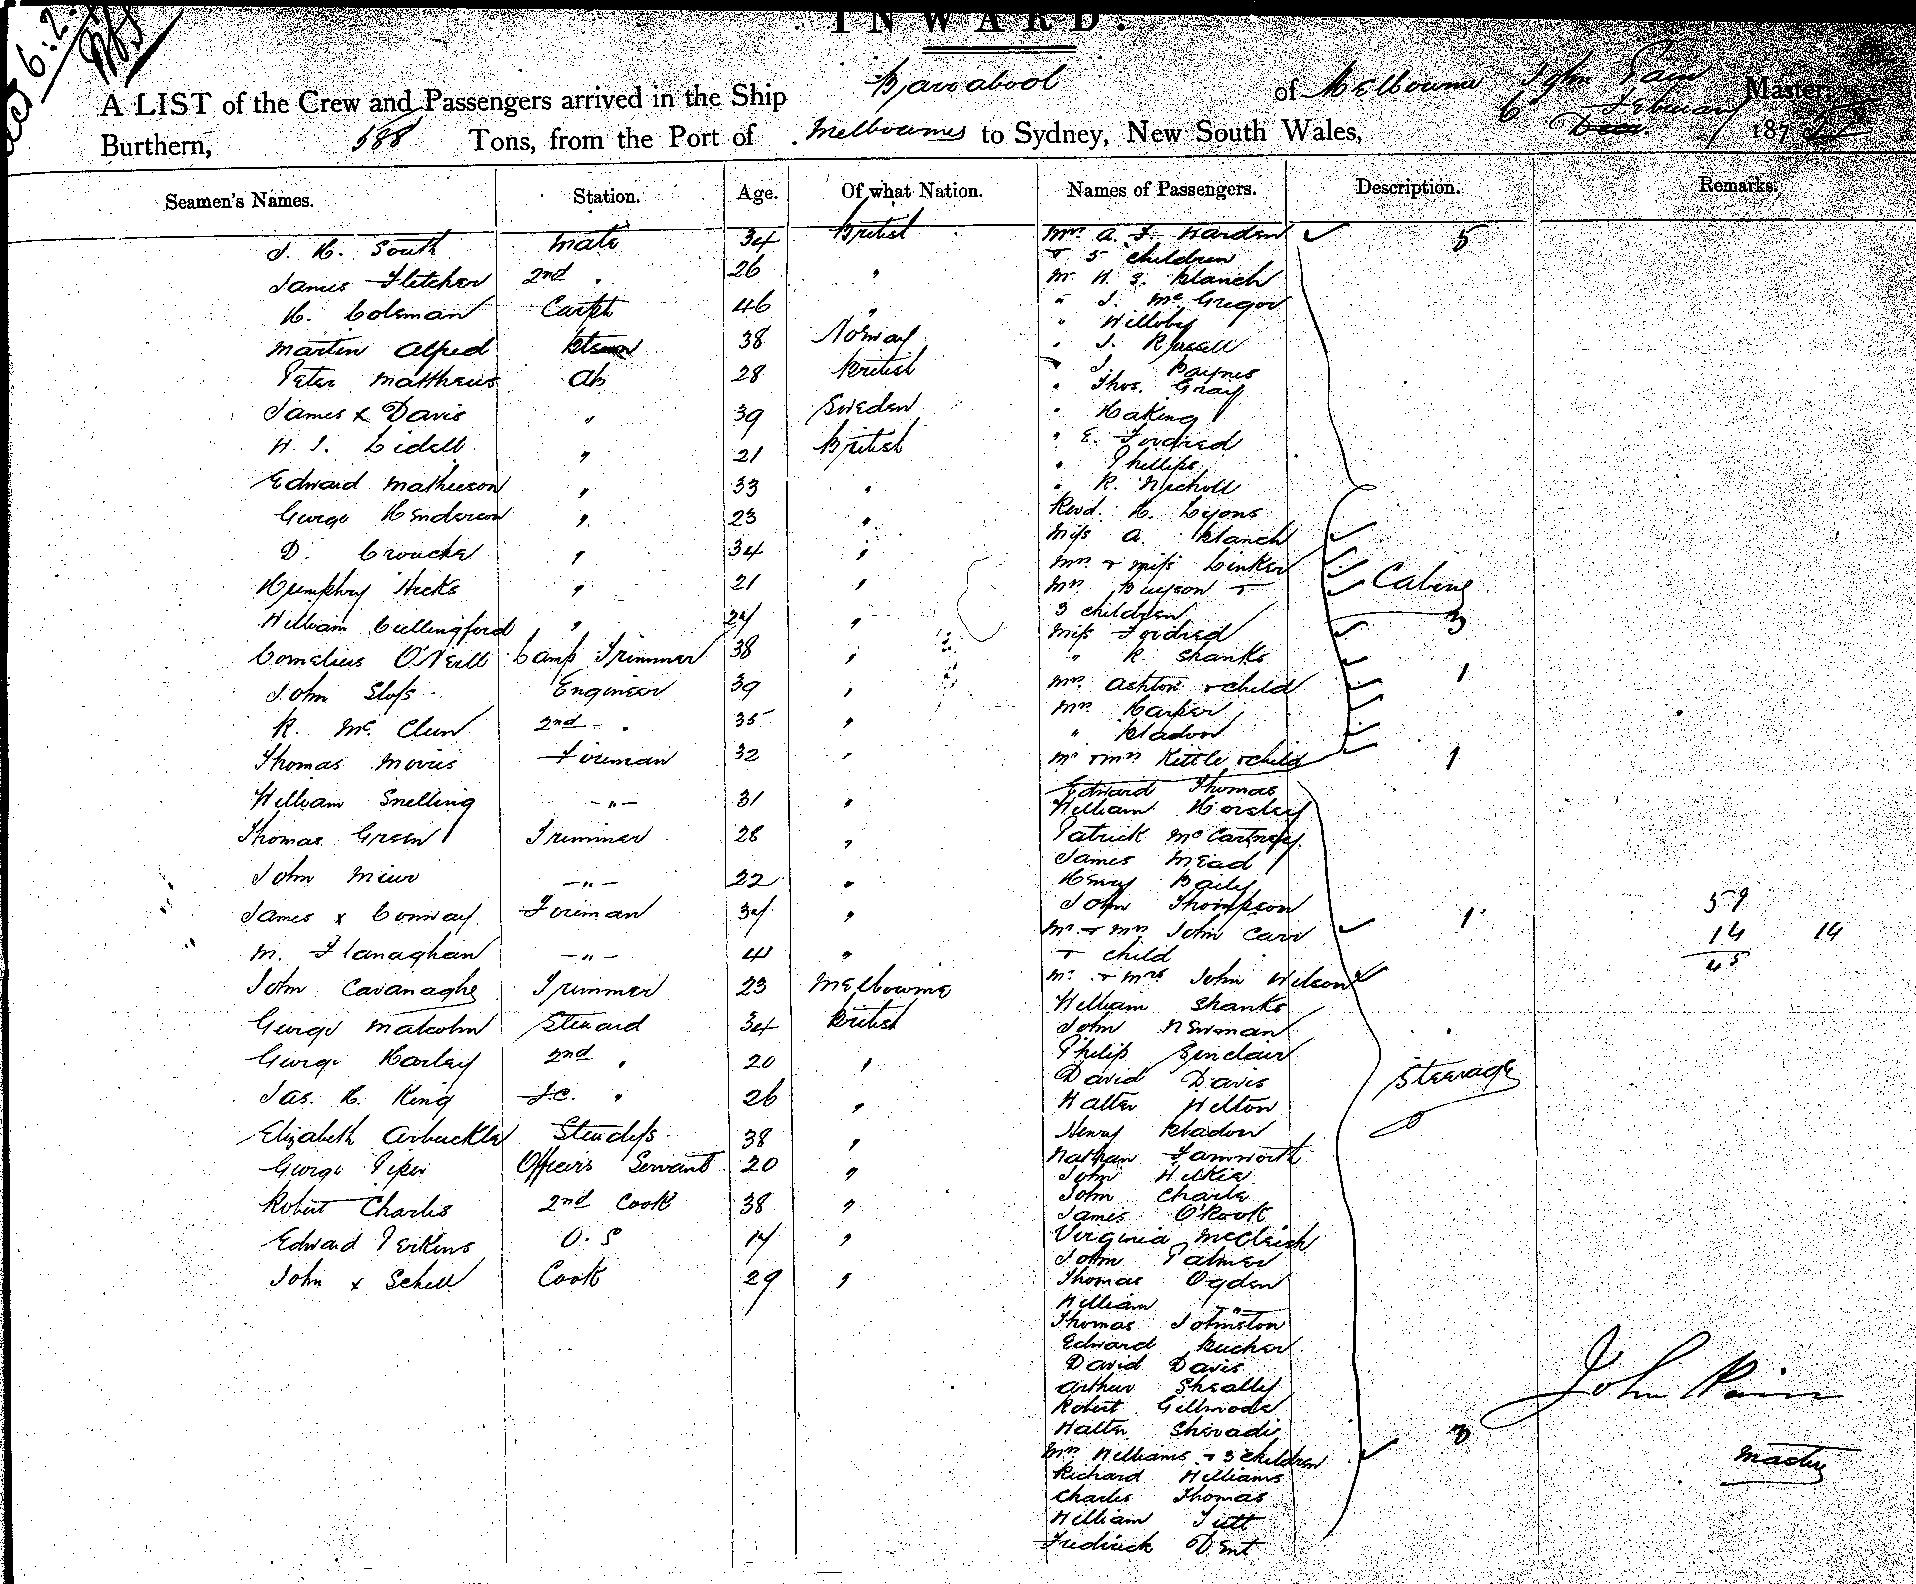 INWARD.
A LIST of the Crew and Passengers arrived in the Ship Barrabool of Melbourne John Pain Master,
Burthern, 588 Tons, from the Port of Melbourne to Sydney, New South Wales, 6 February 187
Seamen's Names. Station. Age. Of what Nation. Names of Passengers. Description. Remarks.
J. H. South Mate 34 British
James Fletcher 2nd " 26 "
H. Coleman Carptr 46 "
Martin Alfred 38 Norway
Peter Matthews Ab 28 British
James x Davis " 39 Sweden
W. J. Lidell " 21 British
Edward Mathieson " 33 "
George Henderson " 23 "
D. Croucher " 34 "
Humphrey Hicks " 21 "
William Cullingford " 24 "
Cornelius O'Neill Lamp Trimmer 38 "
John Sloss Engineer 39 "
R. McClun 2nd " 35 "
Thomas Morris Fireman 32 "
William Snelling -"- 31 "
Thomas Green Trimmer 28 "
John Muir -"- 22 "
James x Conway Fireman 34 "
M. Flanaghan -"- 41 "
John Cavanaghe Trimmer 23 Melbourne
George Malcolm Steward 34 British
George Harley 2nd " 20 "
Jas. H. King F.C. " 26 "
Elizabeth Arbuckle Stewdess 38 "
George Piper Officers Servant 20 "
Robert Charles 2nd Cook 38 "
Edward Perkins O.S 17 "
John x Schell Cook 29 "
Mrs A. J. Harden 5
& 5 children
Mr H. J. Blanch
" J. McGregor
" Willoby
" J. Russell
" J. Baynes
" Thos. Gray
" Haking
" E. Fordred
" Phillips
" R. Nicholl
Revd. H. Lyons
Miss A. Blanch
Mrs & Miss Linker
Mrs Buyson & Cabin
3 children 3
Miss Fordred
" R. Shanks
Mrs Ashton & child 1
Mrs Harper
" Bladon
Mr & Mrs Kettle & child 1
Edward Thomas
William Horsley
Patrick McCartney
James Mead
Henry Baily
John Thompson 59
Mr & Mrs John Carr 1 14 14
& child 45
Mr & Mrs John Wilson
William Shanks
John Newman
Philip Sinclair
David Davis Steerage
Walter Welton
Henry Bladon
Nathan Farnworth
John Wilkie
John Charle
James O'Rook
Virginia McCleish
John Palmer
Thomas Ogden
William "
Thomas Johnston
Edward Bucher
David Davis
Arthur Sheally
Robert Gillmode
Walter Shevadi
Mrs Williams & 3 children 3
Richard Williams
Charles Thomas
William Tutt
Fredirick Dent
John Pain
Master